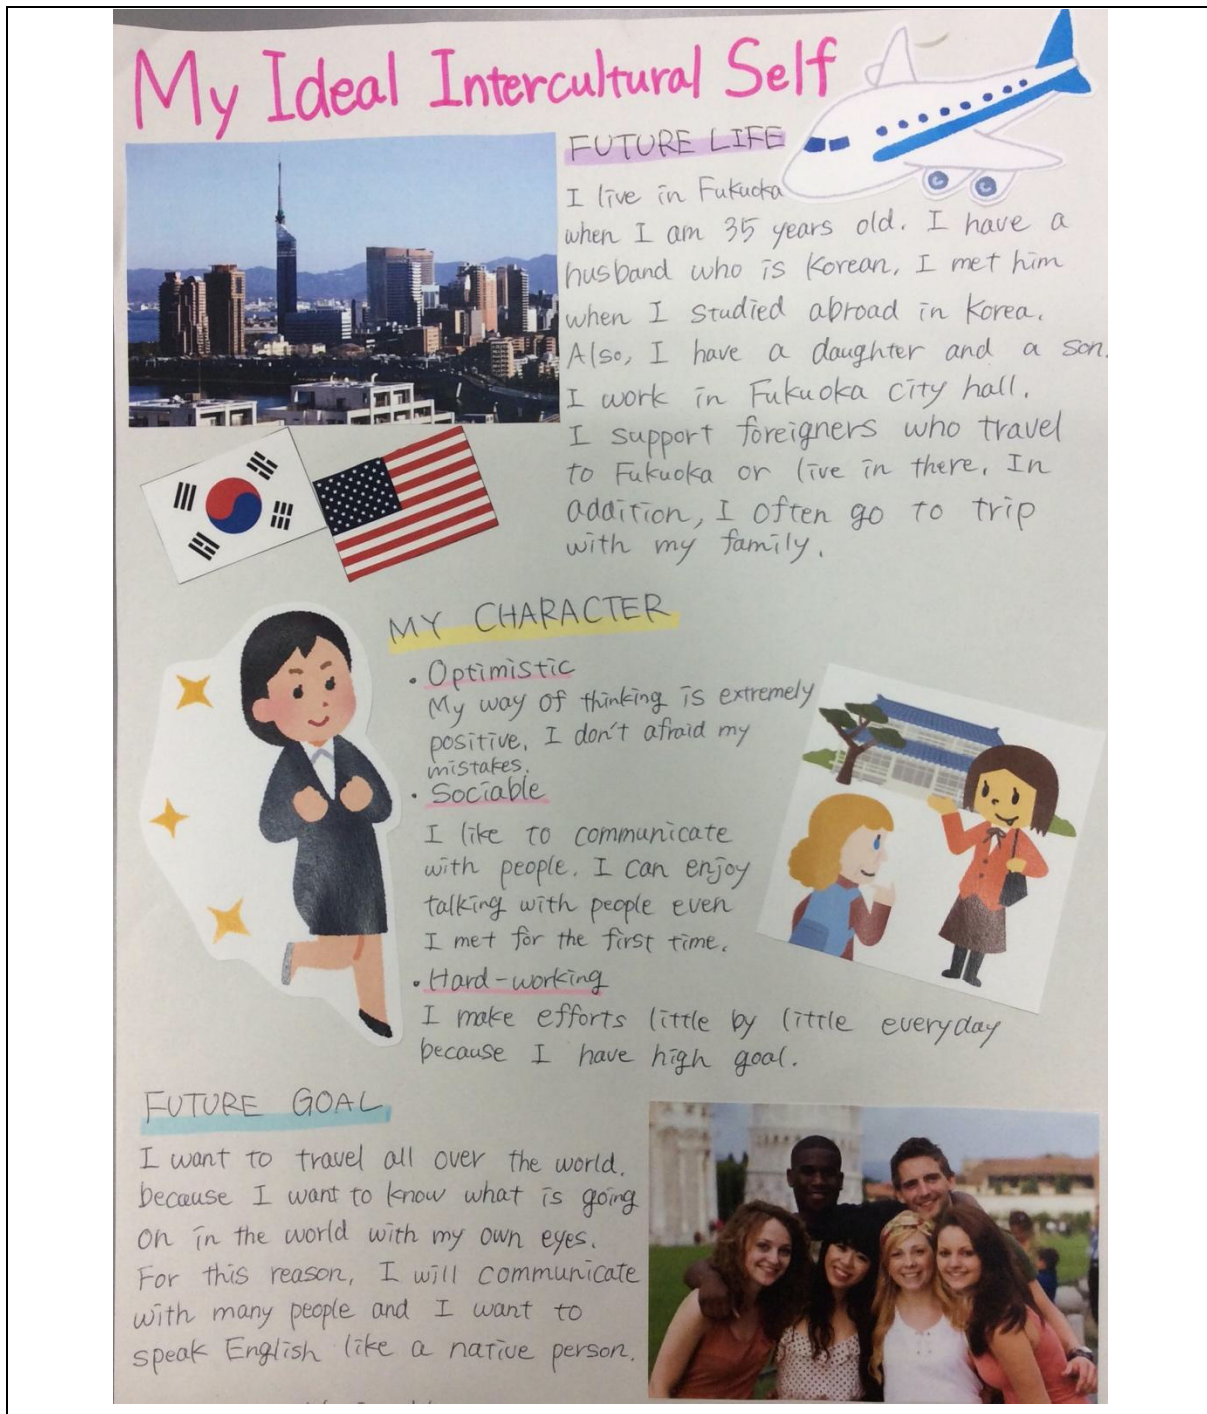 My Ideal Intercultural Self
FUTURE LIFE
I live in Fukuoka
when I am 35 years old. I have a
husband who is Korean. I met him
when I studied abroad in Korea.
Also, I have a daughter and a son.
I work in Fukuoka city hall.
I support foreigners who travel
to Fukuoka or live in there. In
addition, I often go to trip
with my family.
MY CHARACTER
• Optimistic
My way of thinking is extremely
positive. I don't afraid my
mistakes.
• Sociable
I like to communicate
with people. I can enjoy
talking with people even
I met for the first time.
• Hard-working
I make efforts little by little everyday
because I have high goal.
FUTURE GOAL
I want to travel all over the world.
because I want to know what is going
on in the world with my own eyes.
For this reason, I will communicate
with many people and I want to
speak English like a native person.